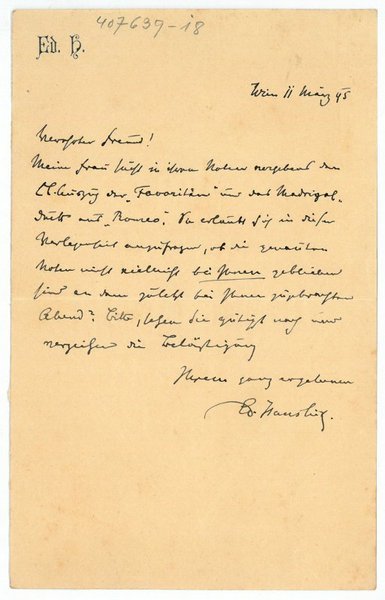 407639-18
Ed. H.
Wien 11 März 95
Verehrter Freund!
Meine Frau sucht in ihren Noten vergebens den
Cl. Auszug der "Favoritin" und das Madrigal-
duett aus "Romeo". Sie erlaubt sich in dieser
Verlegenheit anzufragen, ob die genannten
Noten nicht vielleicht bei Ihnen geblieben
sind an dem zuletzt bei Ihnen zugebrachten
Abend? Bitte, sehen Sie gütigst nach und
verzeihen die Belästigung
Ihrem ganz ergebenen
Ed Hanslick